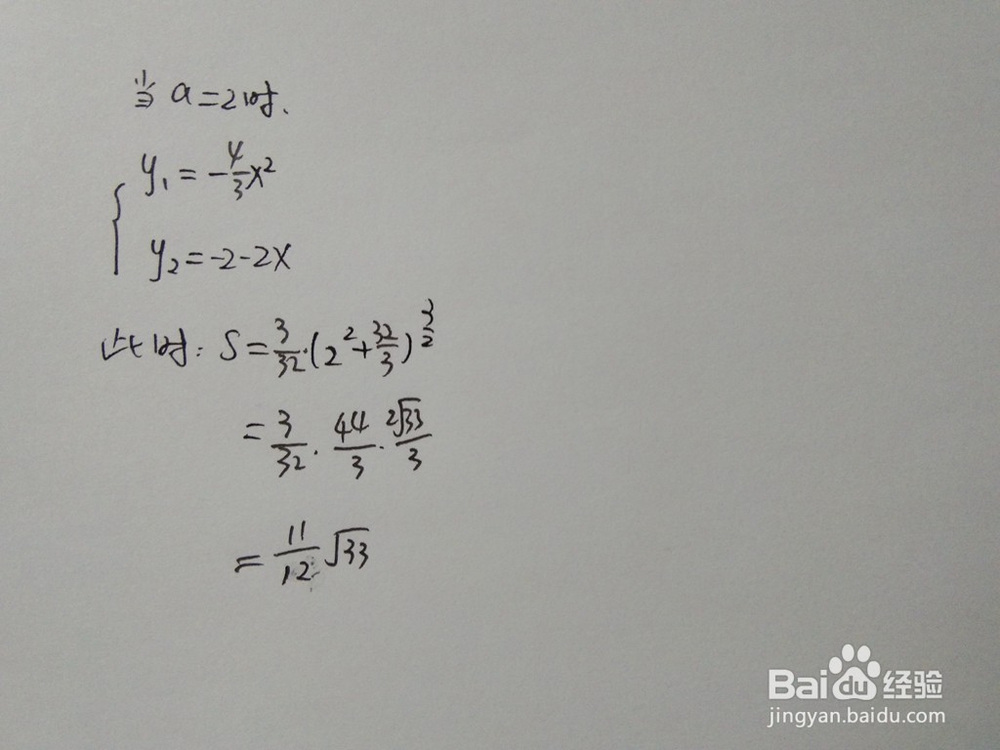 当 a=2时.
y₁ = -4/3 x²
y₂ = -2-2x
此时: S = 3/32·(2²+32/3)^(3/2)
= 3/32 · 44/3 · 2√33/3
= 11/12 √33
Baidu 经验
jingyan.baidu.com